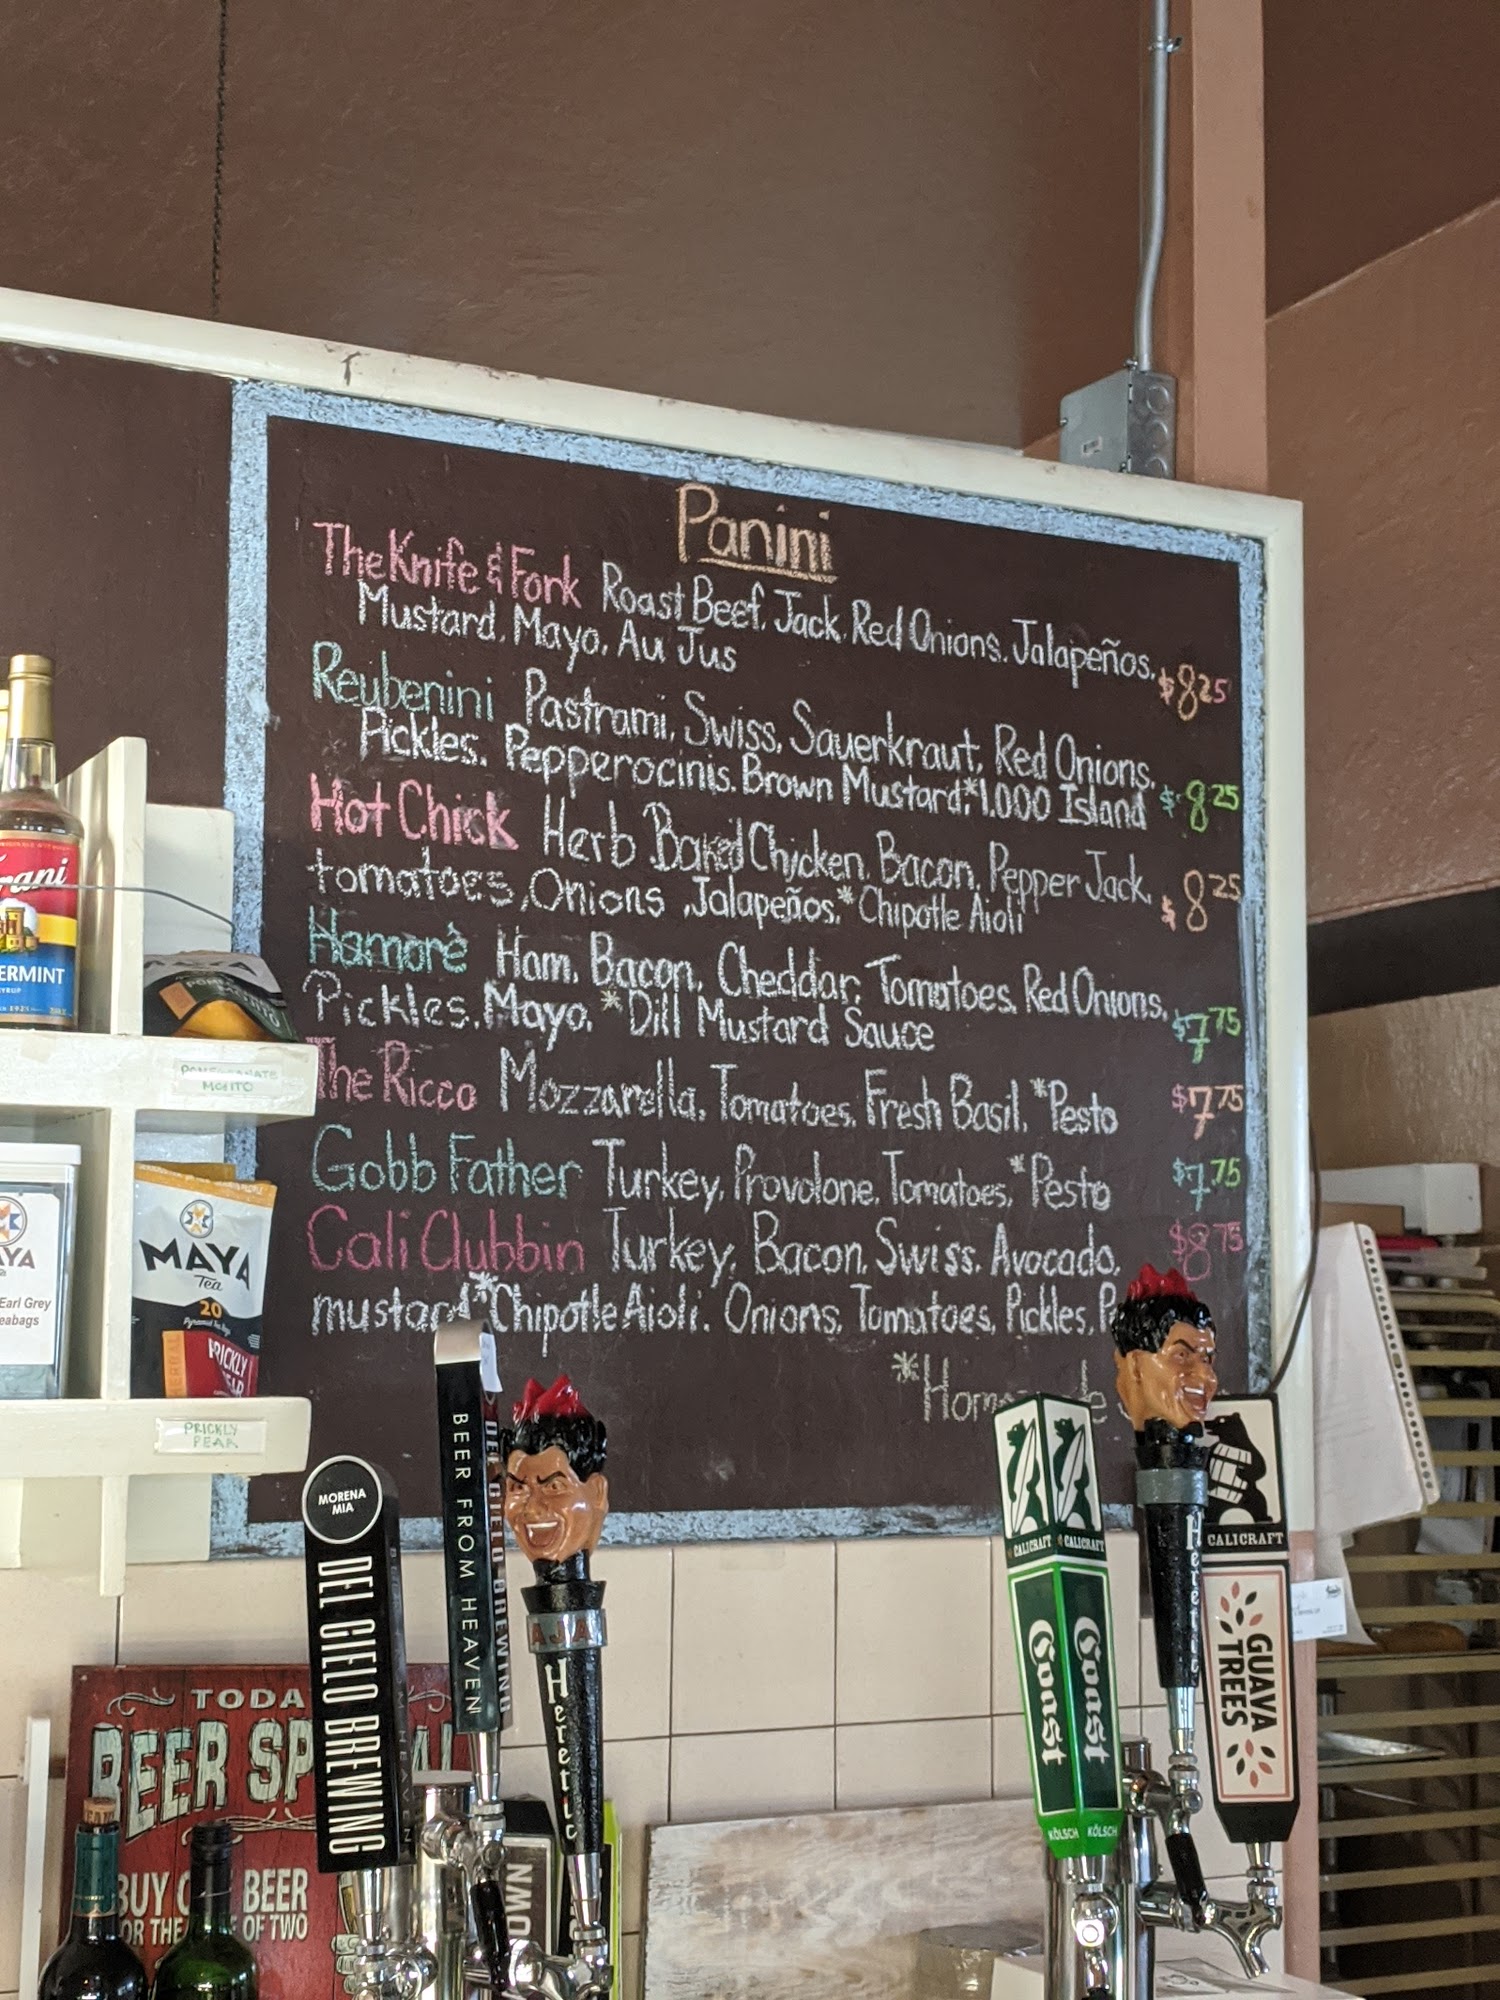 Panini
The Knife & Fork Roast Beef, Jack, Red Onions, Jalapeños,
Mustard, Mayo, Au Jus $8.25
Reubenini Pastrami, Swiss, Sauerkraut, Red Onions,
Pickles, Pepperocinis, Brown Mustard, *1,000 Island $8.25
Hot Chick Herb Baked Chicken, Bacon, Pepper Jack,
tomatoes, Onions, Jalapeños, *Chipotle Aioli $8.25
Hamorè Ham, Bacon, Cheddar, Tomatoes, Red Onions,
Pickles, Mayo, *Dill Mustard Sauce $7.75
The Ricco Mozzarella, Tomatoes, Fresh Basil, *Pesto $7.75
Gobb Father Turkey, Provolone, Tomatoes, *Pesto $7.75
Cali Clubbin Turkey, Bacon, Swiss, Avocado, $8.75
mustard *Chipotle Aioli, Onions, Tomatoes, Pickles,
ERMINT
SYRUP
POMEGRANATE
MOJITO
Earl Grey
MAYA
Tea
20
Pyramid Tea Bags
HERBAL
PRICKLY
PRICKLY
PEAR
MORENA
MIA
DEL CIELO BREWING
BEER FROM HEAVEN
DEL CIELO BREWING
CALICRAFT
CALICRAFT
Coast
Coast
KÖLSCH
KÖLSCH
CALICRAFT
GUAVA
TREES
BEER
BUY
BEER
OF TWO